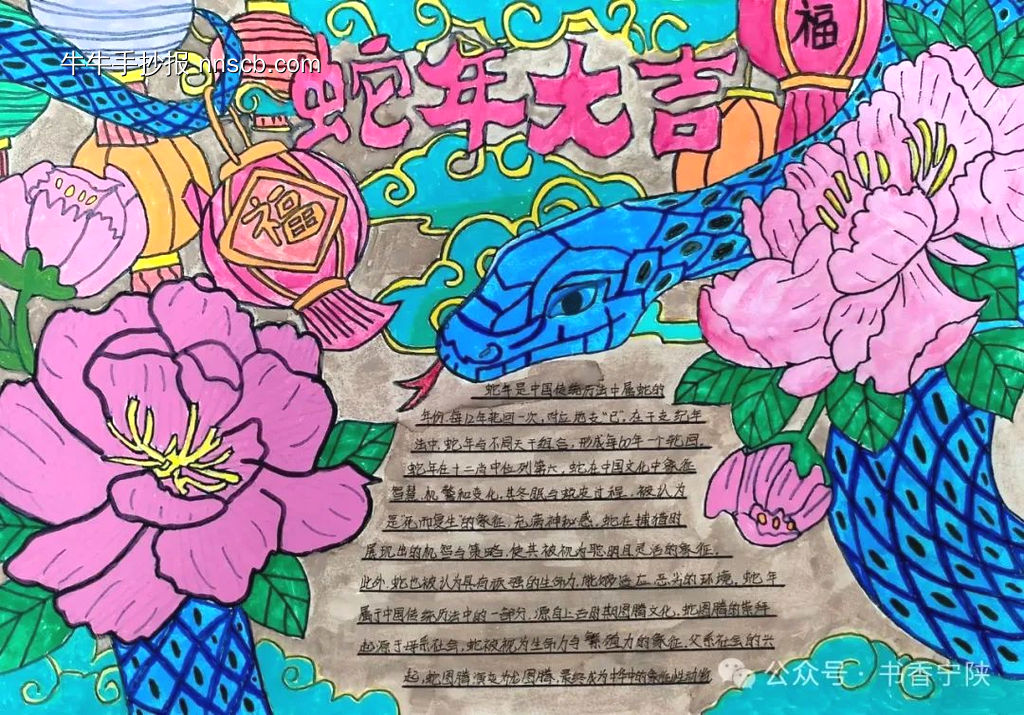 牛牛手抄报 nnscb.com
福
蛇年大吉
福
蛇年是中国传统历法中属蛇的
年份,每12年轮回一次,对应地支"巳",在干支纪年
法中,蛇年与不同天干组合,形成每60年一个轮回。
蛇年在十二肖中位列第六,蛇在中国文化中象征
智慧、机警和变化,其冬眠与蜕皮过程,被认为
是死而复生的象征,充满神秘感,蛇在捕猎时
展现出的机智与策略,使其被视为聪明且灵活的象征。
此外,蛇也被认为具有顽强的生命力,能够适应恶劣的环境,蛇年
属于中国传统历法中的一部分,源自上古时期图腾文化,蛇图腾的崇拜
起源于母系社会,蛇被视为生命力与繁殖力的象征,父系社会的兴
起,蛇图腾演变为龙图腾,最终成为中华的象征性动物
公众号·书香宁陕